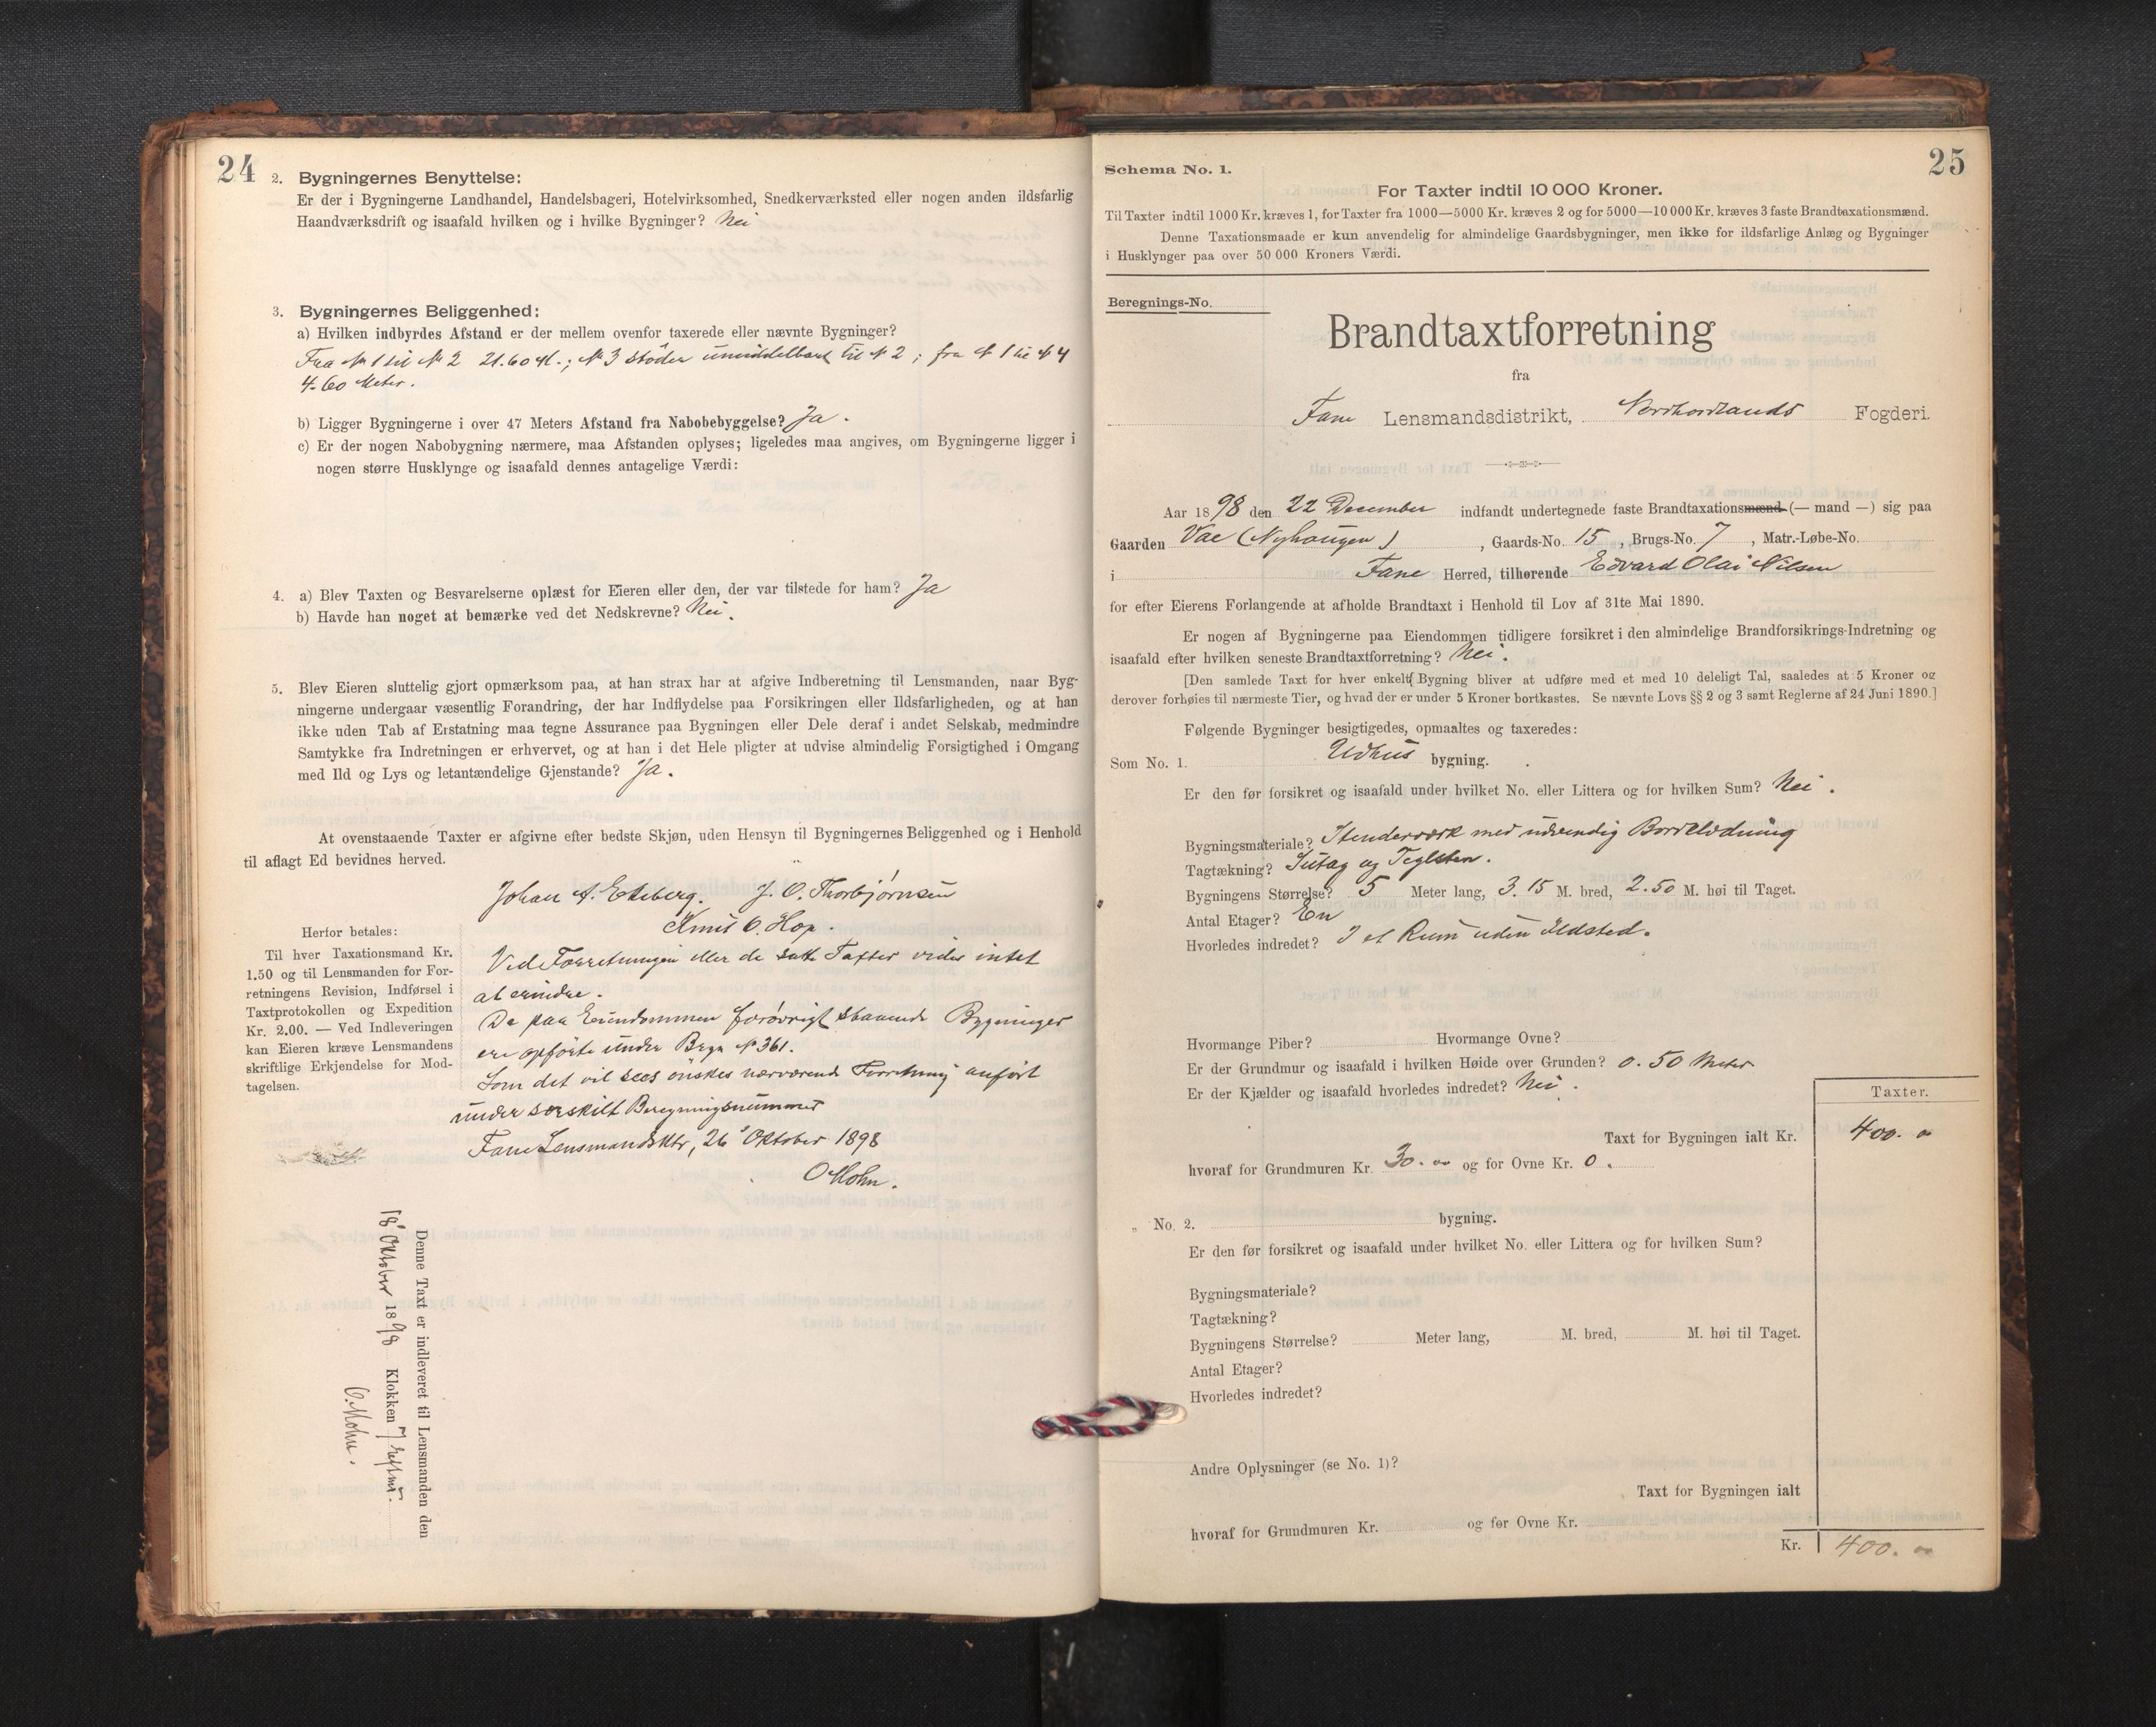 24
2. Bygningernes Benyttelse:
Er der i Bygningerne Landhandel, Handelsbageri, Hotelvirksomhed, Snedkerværksted eller nogen anden ildsfarlig
Haandværksdrift og isaafald hvilken og i hvilke Bygninger? Nei
3. Bygningernes Beliggenhed:
a) Hvilken indbyrdes Afstand er der mellem ovenfor taxerede eller nævnte Bygninger?
Fra № 1 til № 2 21.60 M.; № 3 støder umiddelbart til № 2; fra № 1 til № 4
4.60 Meter.
b) Ligger Bygningerne i over 47 Meters Afstand fra Nabobebyggelse? Ja.
c) Er der nogen Nabobygning nærmere, maa Afstanden oplyses; ligeledes maa angives, om Bygningerne ligger i
nogen større Husklynge og isaafald dennes antagelige Værdi:
4. a) Blev Taxten og Besvarelserne oplæst for Eieren eller den, der var tilstede for ham? Ja
b) Havde han noget at bemærke ved det Nedskrevne? Nei.
5. Blev Eieren sluttelig gjort opmærksom paa, at han strax har at afgive Indberetning til Lensmanden, naar Byg-
ningerne undergaar væsentlig Forandring, der har Indflydelse paa Forsikringen eller Ildsfarligheden, og at han
ikke uden Tab af Erstatning maa tegne Assurance paa Bygningen eller Dele deraf i andet Selskab, medmindre
Samtykke fra Indretningen er erhvervet, og at han i det Hele pligter at udvise almindelig Forsigtighed i Omgang
med Ild og Lys og letantændelige Gjenstande? Ja.
At ovenstaaende Taxter er afgivne efter bedste Skjøn, uden Hensyn til Bygningernes Beliggenhed og i Henhold
til aflagt Ed bevidnes herved.
Johan A. J. O. Thorbjørnsen
Knut O. Hop.
Herfor betales:
Til hver Taxationsmand Kr.
1.50 og til Lensmanden for For-
retningens Revision, Indførsel i
Taxtprotokollen og Expedition
Kr. 2.00. — Ved Indleveringen
kan Eieren kræve Lensmandens
skriftlige Erkjendelse for Mod-
tagelsen.
Ved Forretningen eller de satte Taxter vides intet
at erindre.
De paa Eiendommen forøvrigt staaende Bygninger
ere opførte under Bergn № 361.
Som det vil sees ønskes nærværende Forretning anført
under særskilt Beregningsnummer
Fane Lensmandsktr, 26 Oktober 1898
O Mohn.
Denne Taxt er indleveret til Lensmanden den
18 Oktober 1898 Klokken 7 efterm.
O. Mohn.
25
Schema No. 1.
For Taxter indtil 10 000 Kroner.
Til Taxter indtil 1000 Kr. kræves 1, for Taxter fra 1000—5000 Kr. kræves 2 og for 5000—10 000 Kr. kræves 3 faste Brandtaxationsmænd.
Denne Taxationsmaade er kun anvendelig for almindelige Gaardsbygninger, men ikke for ildsfarlige Anlæg og Bygninger
i Husklynger paa over 50 000 Kroners Værdi.
Beregnings-No.
Brandtaxtforretning
fra
Fane Lensmandsdistrikt, Nordhordlands Fogderi.
Aar 1898 den 22 December indfandt undertegnede faste Brandtaxationsmænd (— mand —) sig paa
Gaarden Vae (Nyhaugen), Gaards-No. 15, Brugs-No. 7, Matr.-Løbe-No.
i Fane Herred, tilhørende Edvard Olai Nilsen
for efter Eierens Forlangende at afholde Brandtaxt i Henhold til Lov af 31te Mai 1890.
Er nogen af Bygningerne paa Eiendommen tidligere forsikret i den almindelige Brandforsikrings-Indretning og
isaafald efter hvilken seneste Brandtaxtforretning? Nei.
[Den samlede Taxt for hver enkelt Bygning bliver at udføre med et med 10 deleligt Tal, saaledes at 5 Kroner og
derover forhøies til nærmeste Tier, og hvad der er under 5 Kroner bortkastes. Se nævnte Lovs §§ 2 og 3 samt Reglerne af 24 Juni 1890.]
Følgende Bygninger besigtigedes, opmaaltes og taxeredes:
Som No. 1. Udhus bygning.
Er den før forsikret og isaafald under hvilket No. eller Littera og for hvilken Sum? Nei.
Bygningsmateriale? Stenderværk med udvendig Bordklædning
Tagtækning? Sutag og Teglsten.
Bygningens Størrelse? 5 Meter lang, 3.15 M. bred, 2.50 M. høi til Taget.
Antal Etager? En
Hvorledes indredet? I et Rum uden Ildsted.
Hvormange Piber? Hvormange Ovne?
Er der Grundmur og isaafald i hvilken Høide over Grunden? 0.50 Meter
Er der Kjælder og isaafald hvorledes indredet? Nei.
Taxter.
Taxt for Bygningen ialt Kr. 400. 00
hvoraf for Grundmuren Kr. 30.00 og for Ovne Kr. 0.
„ No. 2. bygning.
Er den før forsikret og isaafald under hvilket No. eller Littera og for hvilken Sum?
Bygningsmateriale?
Tagtækning?
Bygningens Størrelse? Meter lang, M. bred, M. høi til Taget.
Antal Etager?
Hvorledes indredet?
Andre Oplysninger (se No. 1)?
Taxt for Bygningen ialt
hvoraf for Grundmuren Kr. og for Ovne Kr.
Kr. 400. 00